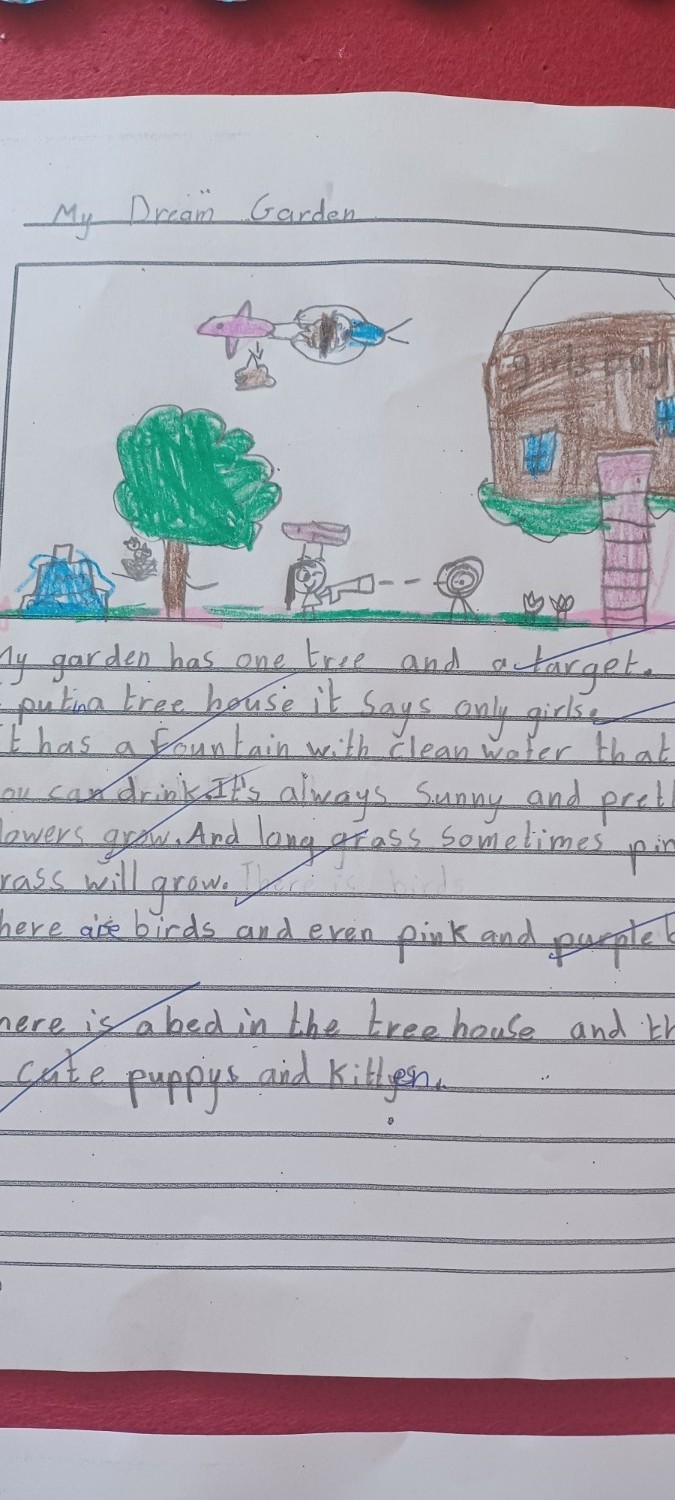 My Dream Garden
girls only
My garden has one tree and a target.
put in a tree house it says only girls.
It has a fountain with clean water that
you can drink. It's always sunny and prett
lowers grow. And long grass sometimes pin
rass will grow. There is birds
here are birds and even pink and purple b
here is a bed in the tree house and th
cute puppys and kittyen.